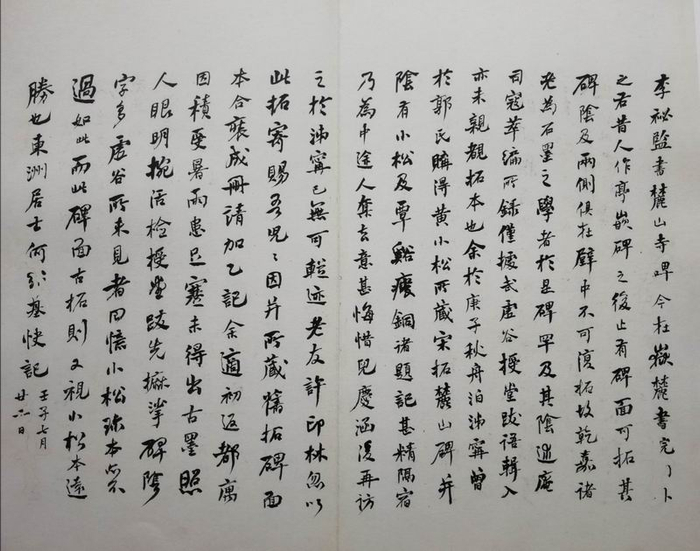 李祕監書麓山寺碑今在嶽麓書院
之右昔人作亭嵌碑之後止有碑面可拓其
碑陰及兩側俱在壁中不可復拓故乾嘉諸
老為石墨之學者於是碑罕及其陰述庵
司寇萃編所錄僅據武虛谷授堂跋語輯入
亦未親覩拓本也余於庚子秋舟泊泲甯曾
於郭氏購得黃小松所藏宋拓麓山碑并
陰有小松及覃谿癭銅諸題記甚精隔宿
乃為中途人奪去意甚悔惜兒慶涵後再訪
之於泲甯已無可蹤迹老友許印林忽以
此拓寄賜吾兒〻因并所藏舊拓碑面
本合裝成冊請加乙記余適初返都寓
因積憂暑雨患足蹇未得出古墨照
人眼明腕活檢授堂跋先摩挲碑陰
字多虛谷所未見者回憶小松珠本當不
過如此而此碑面古拓則又視小松本遠
勝也東洲居士何紹基快記
壬子七月
廿六日